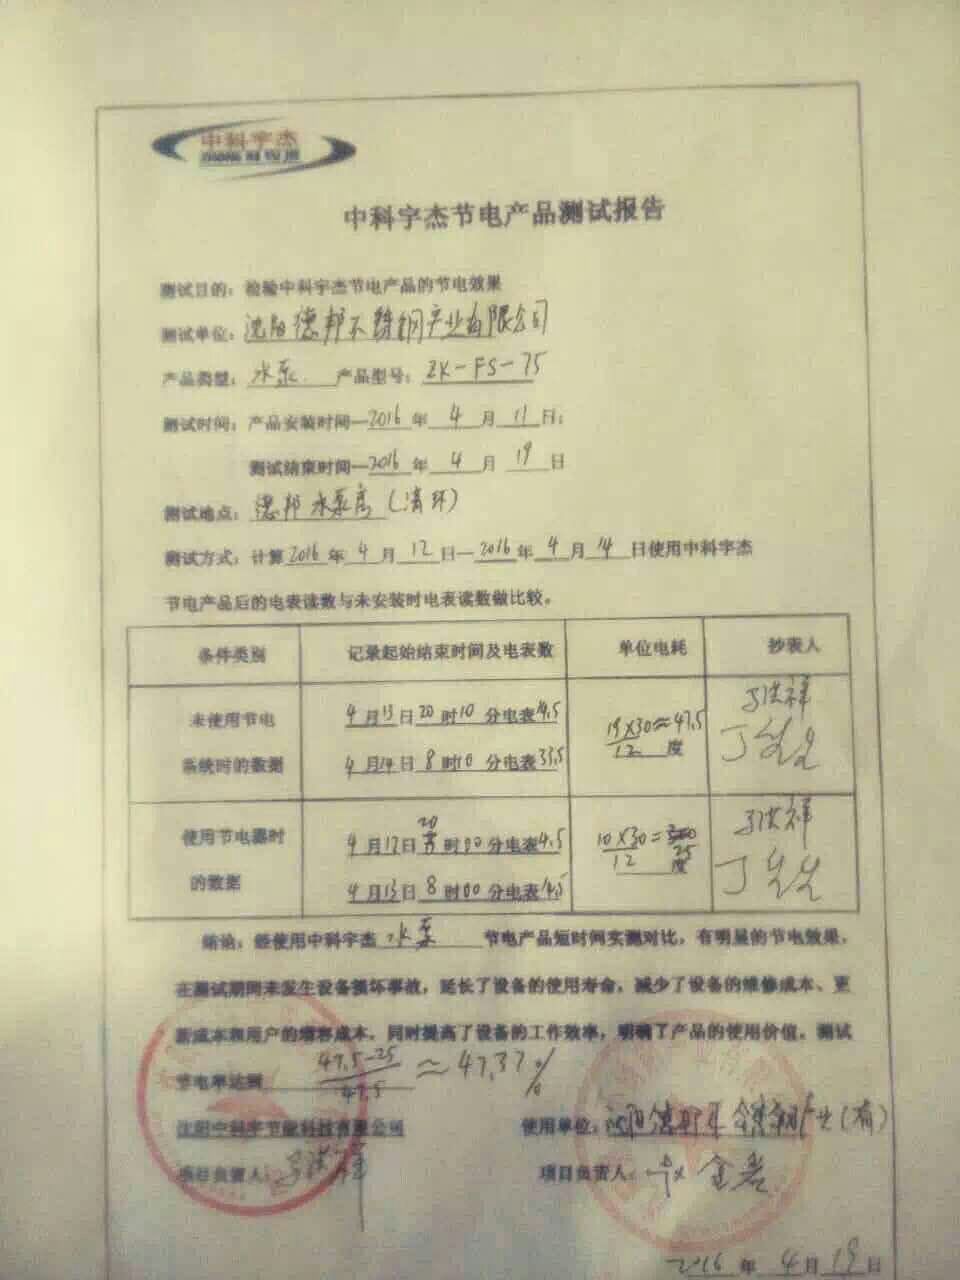 中科宇杰
中科宇杰节电产品测试报告
测试目的：检验中科宇杰节电产品的节电效果
测试单位：沈阳德邦不锈钢产业有限公司
产品类型：水泵 产品型号：ZK-FS-75
测试时间：产品安装时间—2016年4月11日；
测试结束时间—2016年4月19日
测试地点：德邦水泵房（清环）
测试方式：计算2016年4月12日—2016年4月14日使用中科宇杰
节电产品后的电表读数与未安装时电表读数做比较。
条件类别 记录起始结束时间及电表数 单位电耗 抄表人
未使用节电
系统时的数据
4月13日20时10分电表14.5
4月14日8时10分电表33.5
19×30≈47.5
12 度
使用节电器时
的数据
4月12日20时00分电表4.5
4月13日8时00分电表14.5
10×30=
12 25
度
结论：经使用中科宇杰水泵节电产品短时间实测对比，有明显的节电效果，
在测试期间未发生设备损坏事故，延长了设备的使用寿命，减少了设备的维修成本、更
新成本和用户的增容成本，同时提高了设备的工作效率，明确了产品的使用价值。测试
节电率达到 47.5-25
47.5
≈47.37%
沈阳中科宇节能科技有限公司 使用单位：
项目负责人： 项目负责人：
2016年4月19日